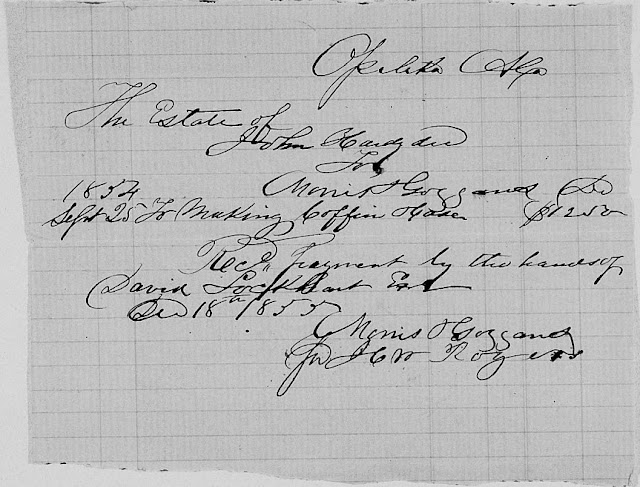 Opelika Ala
The Estate of
John Hardydee
To
1854 Morris & Goggans Dr
Sept 25 To Making Coffin & Case $12 50
Recd Payment by the hands of
David Lockhart Ex
Dec 18th 1855
Morris & Goggans
J W Rogers